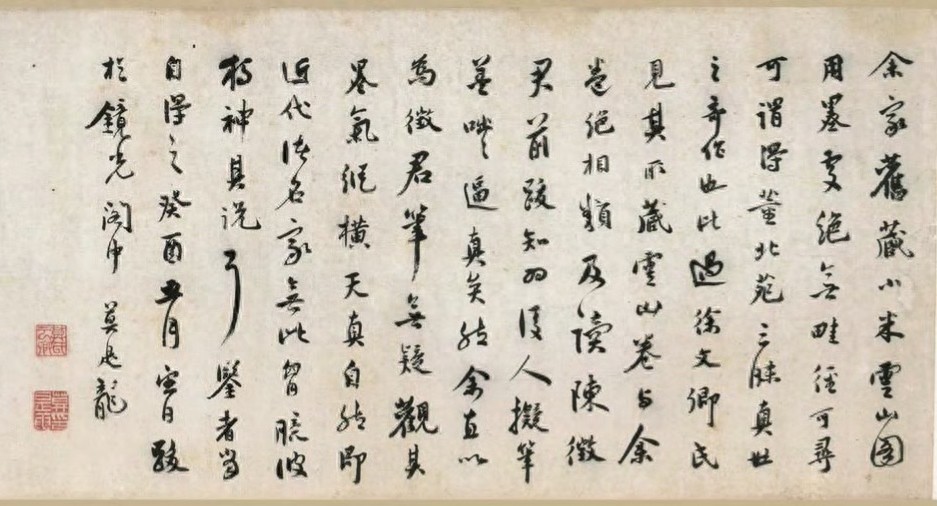 余家舊藏小米雲山圖
用墨處絕無畦徑可尋
可謂得董北苑三昧真世
之奇作也比過徐文卿氏
見其所藏雲山卷与余
卷絕相類及讀陳徵
君前跋知為後人擬筆
蓋咄咄逼真矣然余直以
為徵君筆無疑觀其
墨氣縱橫天真自然即
近代諸名家無此胷臆彼
神具說了鑒者當
自得之癸酉五月日跋
於鏡光閣中 莫是龍